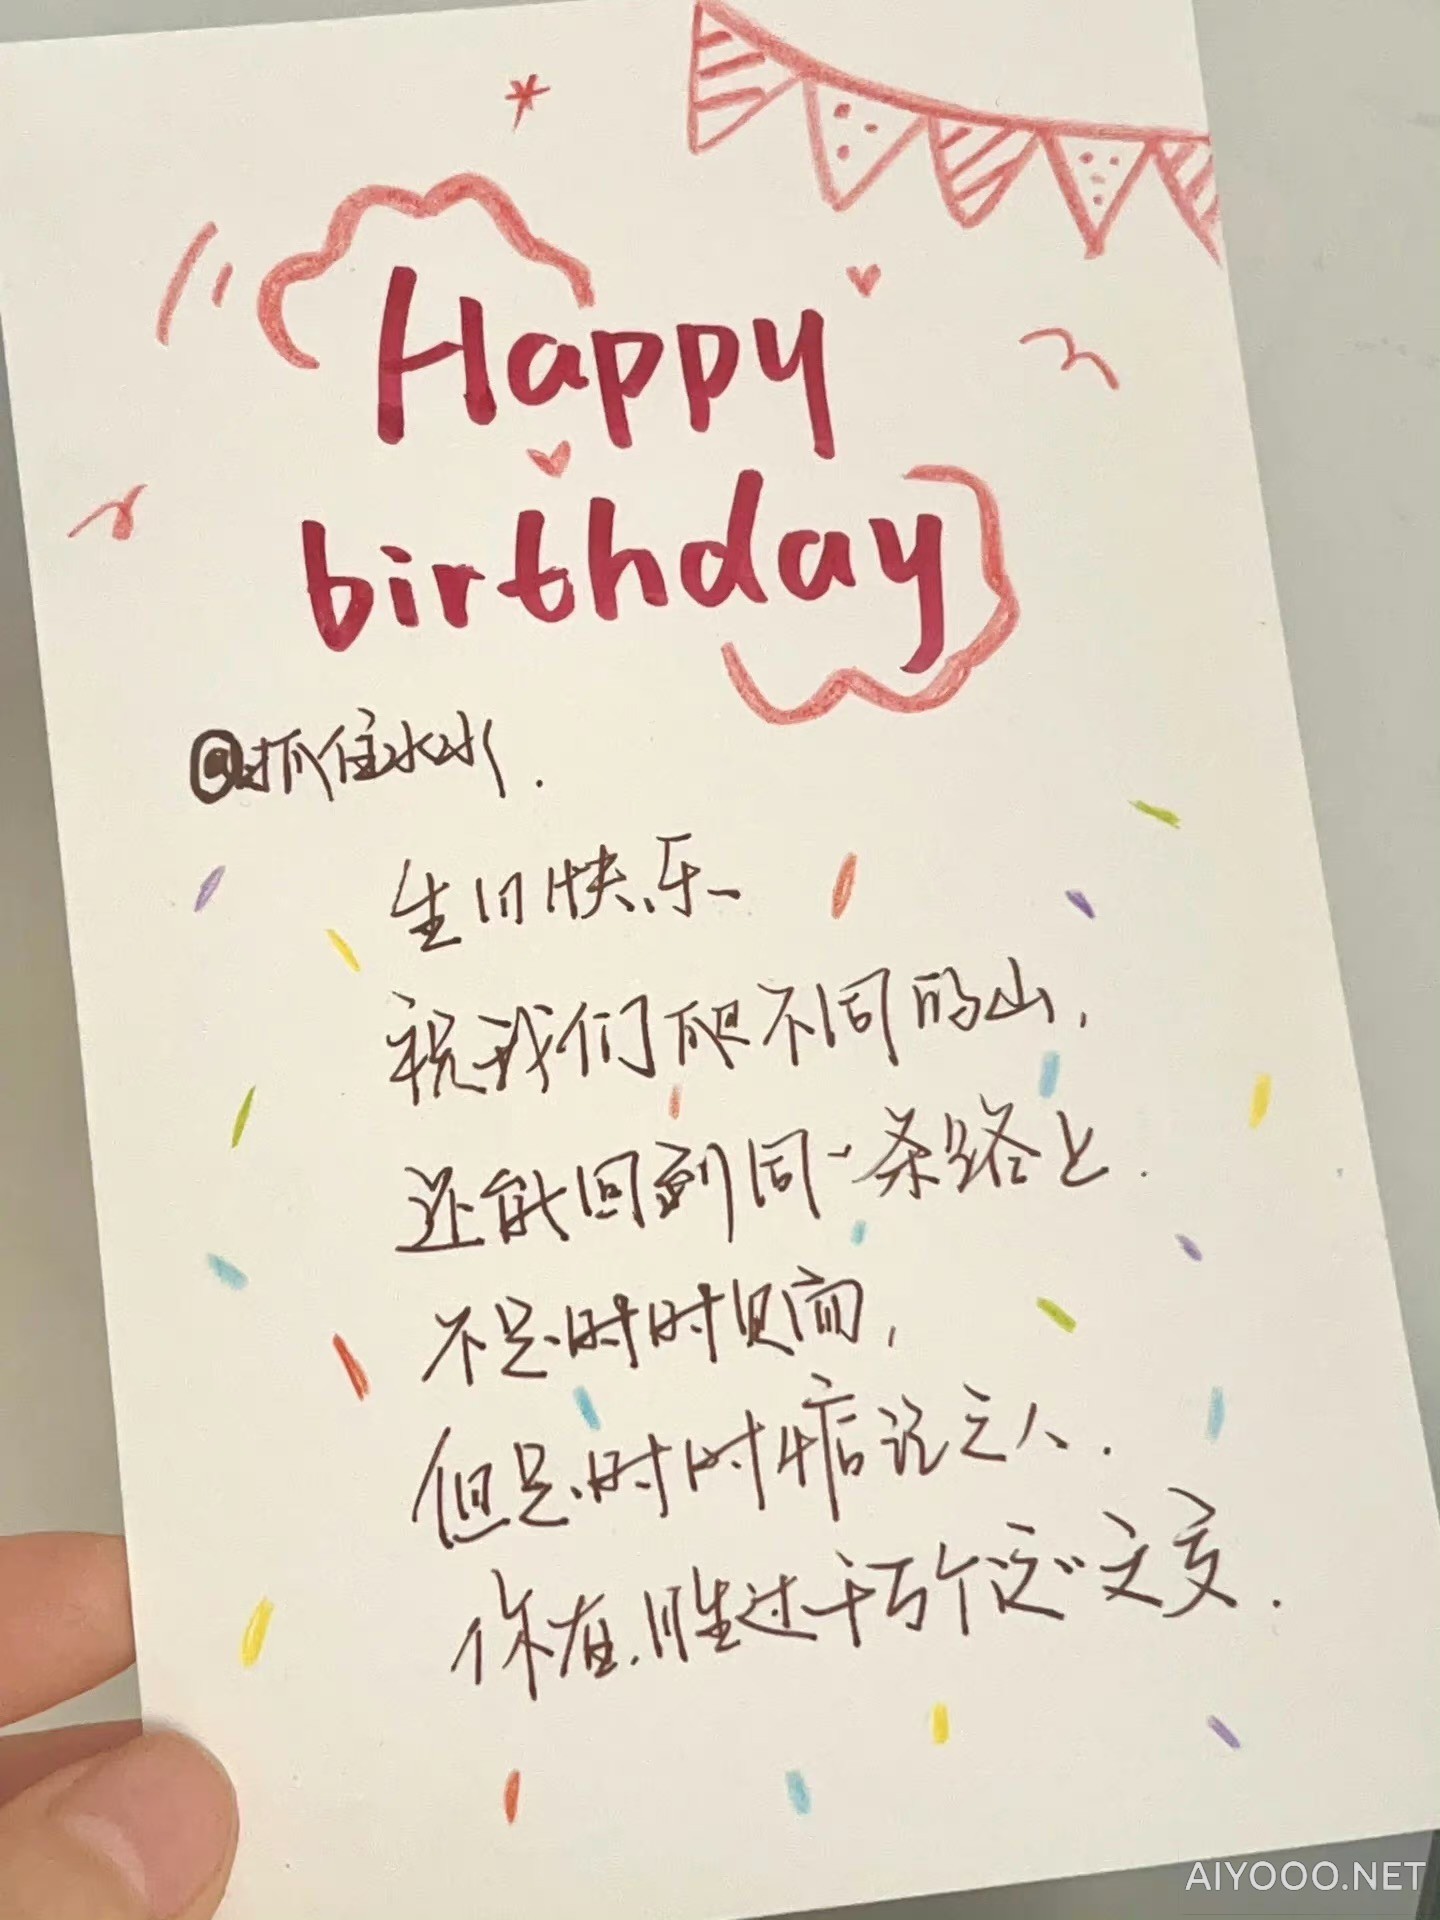 Happy
birthday
@抓住水水.
生日快乐
祝我们爬不同的山,
还能回到同一条路上.
不是时时见面,
但是时时惦记之人.
你在.胜过千万个泛泛之交.
AIYOOO.NET